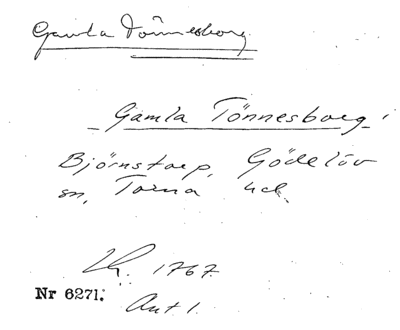 Gamla Tönnesborg
Gamla Tönnesborg
Björnstorp, Gödelöv
sn, Torna hd.
Lk. 1767.
Nr 6271.
Akt 1.